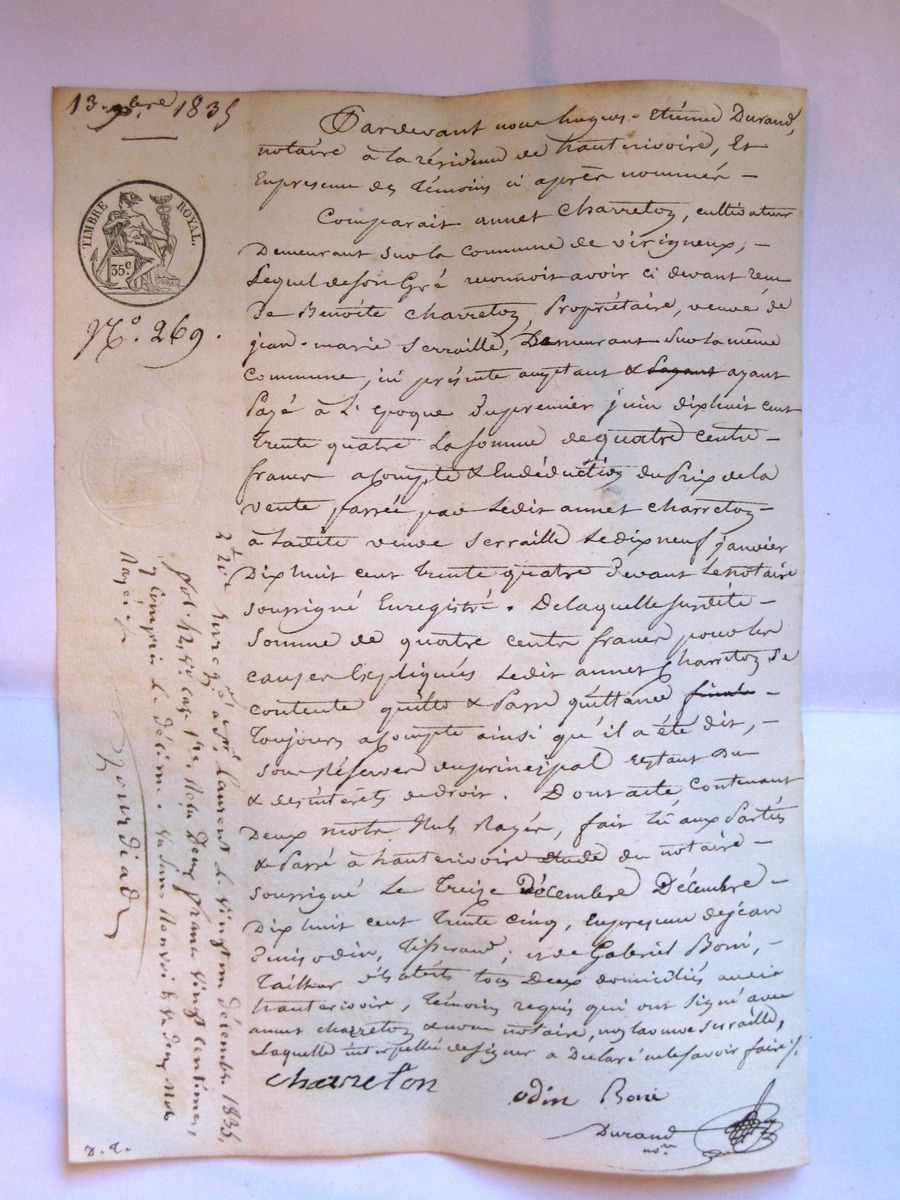 13 xbre 1835
TIMBRE ROYAL.
35c
No. 269.
Pardevant nous hugues-Etiénne Durand,
notaire à la résidence de hauterivoire, Et
En presence des témoins ci après nommés –
Comparait annet Charreton, cultivateur
Demeurant sur la commune de virigneux, –
Lequel de son Gré reconnoit avoir ci devant reçu
De Benoite Charreton, Propriétaire, veuve de
jean-marie Serraille, Demeurant sur la même
Commune, ici présente acceptant & ayant
Payé à L'epoque du premier juin dix huit cent
trente quatre La somme de quatre cents –
francs acompte & En déduction du Prix de la
vente passée par Ledit annet Charreton –
à Ladite veuve Serraille Le dix neuf janvier
Dix huit cent trente quatre Devant Le notaire
soussigné Enregistré. De laquelle susdite –
somme de quatre cents francs pour les
causes Expliqués Ledit annet Charreton se
contente quitte & Passe quittance finale –
Toujours acompte ainsi qu'il a été dit, –
sous Réserve du principal restant du
& des intérêts de droit. Dont acte contenant
Deux mots Nuls Rayés, fait Lû aux Parties
& Passé à hauterivoire Etude du notaire –
soussigné Le Treize Décembre Décembre –
Dix huit cent trente cinq, En presence de jean
Denis odin, Tisserand, et de Gabriel Boni, –
Tailleur d'habits tous Deux domiciliés audit
hauterivoire, témoins requis qui ont signé avec
annet charreton & nous notaire, non la veuve Serraille,
Laquelle interpellée de signer a Déclaré ne le savoir faire ./.
charreton
odin Boni
Durand
nore
Enregé à St Laurent Le vingt un décembre 1835,
fol. 42, vo cases 1re Reçu Deux francs vingt centimes,
y compris Le décime
Rayés
D. D.